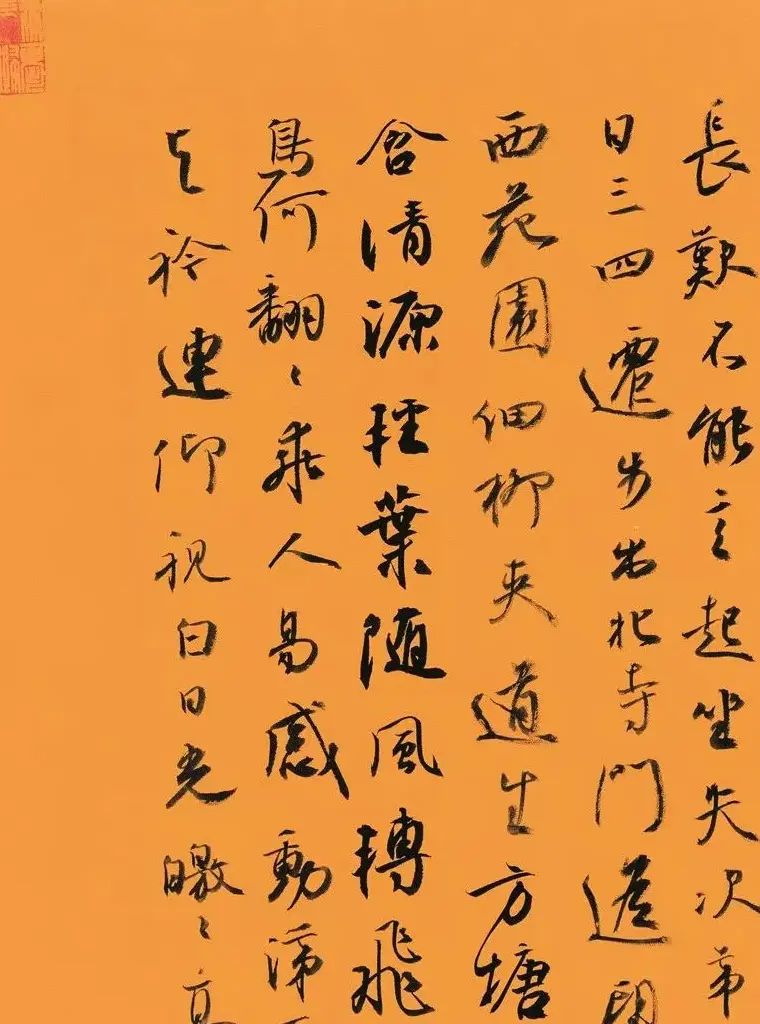 長歎不能言起坐失次第
日三四遷步出北寺門遥
西苑園細柳夾道生方塘
含清源輕葉隨風轉飛
鳥何翻〻乖人易感動涕
与衿連仰視白日光皦〻